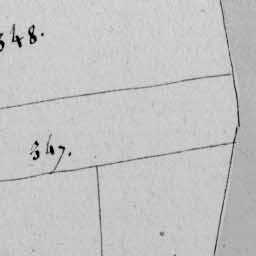 348.
347.